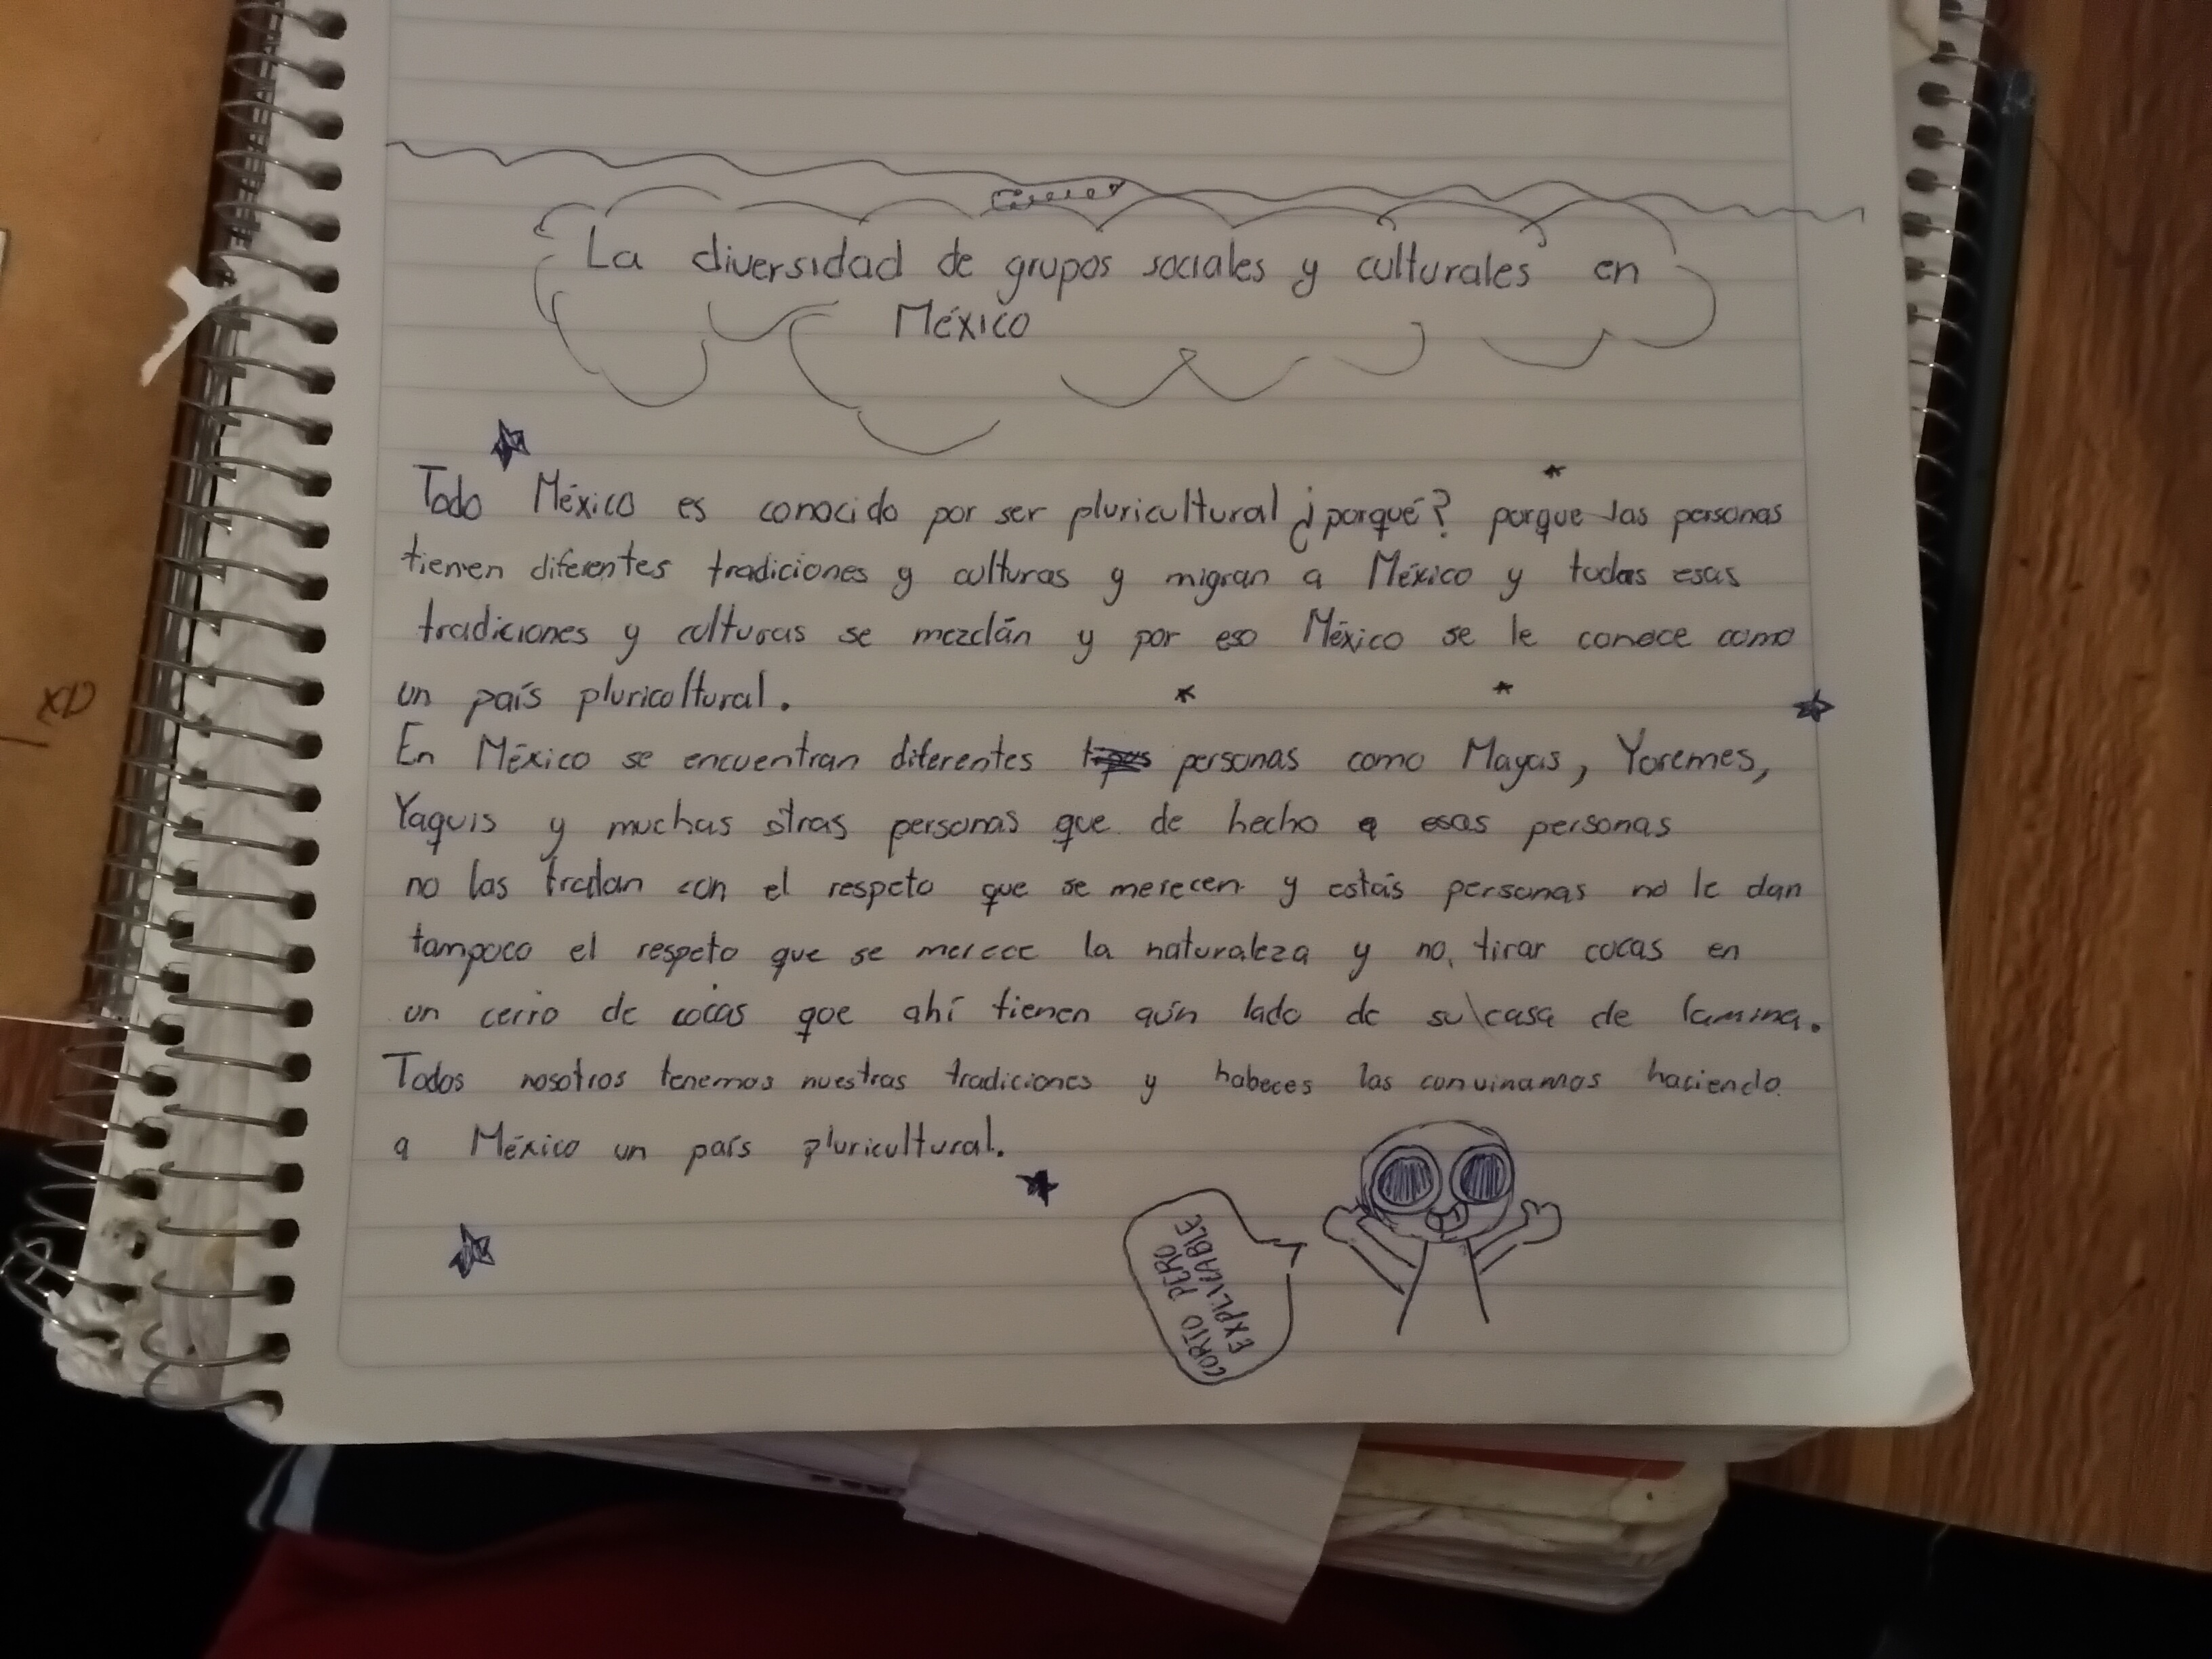 La diversidad de grupos sociales y culturales en
México
Todo México es conocido por ser pluricultural ¿porqué? porque las personas
tienen diferentes tradiciones y culturas y migran a México y todas esas
tradiciones y culturas se mezclán y por eso México se le conoce como
un país pluricoltural.
En México se encuentran diferentes personas como Mayas, Yoremes,
Yaquis y muchas otras personas que de hecho a esas personas
no las tratan con el respeto que se merecen y estás personas no le dan
tampoco el respeto que se merece la naturaleza y no tirar cocas en
un cerro de cocas que ahí tienen aún lado de su casa de lamina.
Todos nosotros tenemos nuestras tradiciones y habeces las convinamos haciendo
a México un país pluricultural.
CORTO PERO
EXPLICABLE